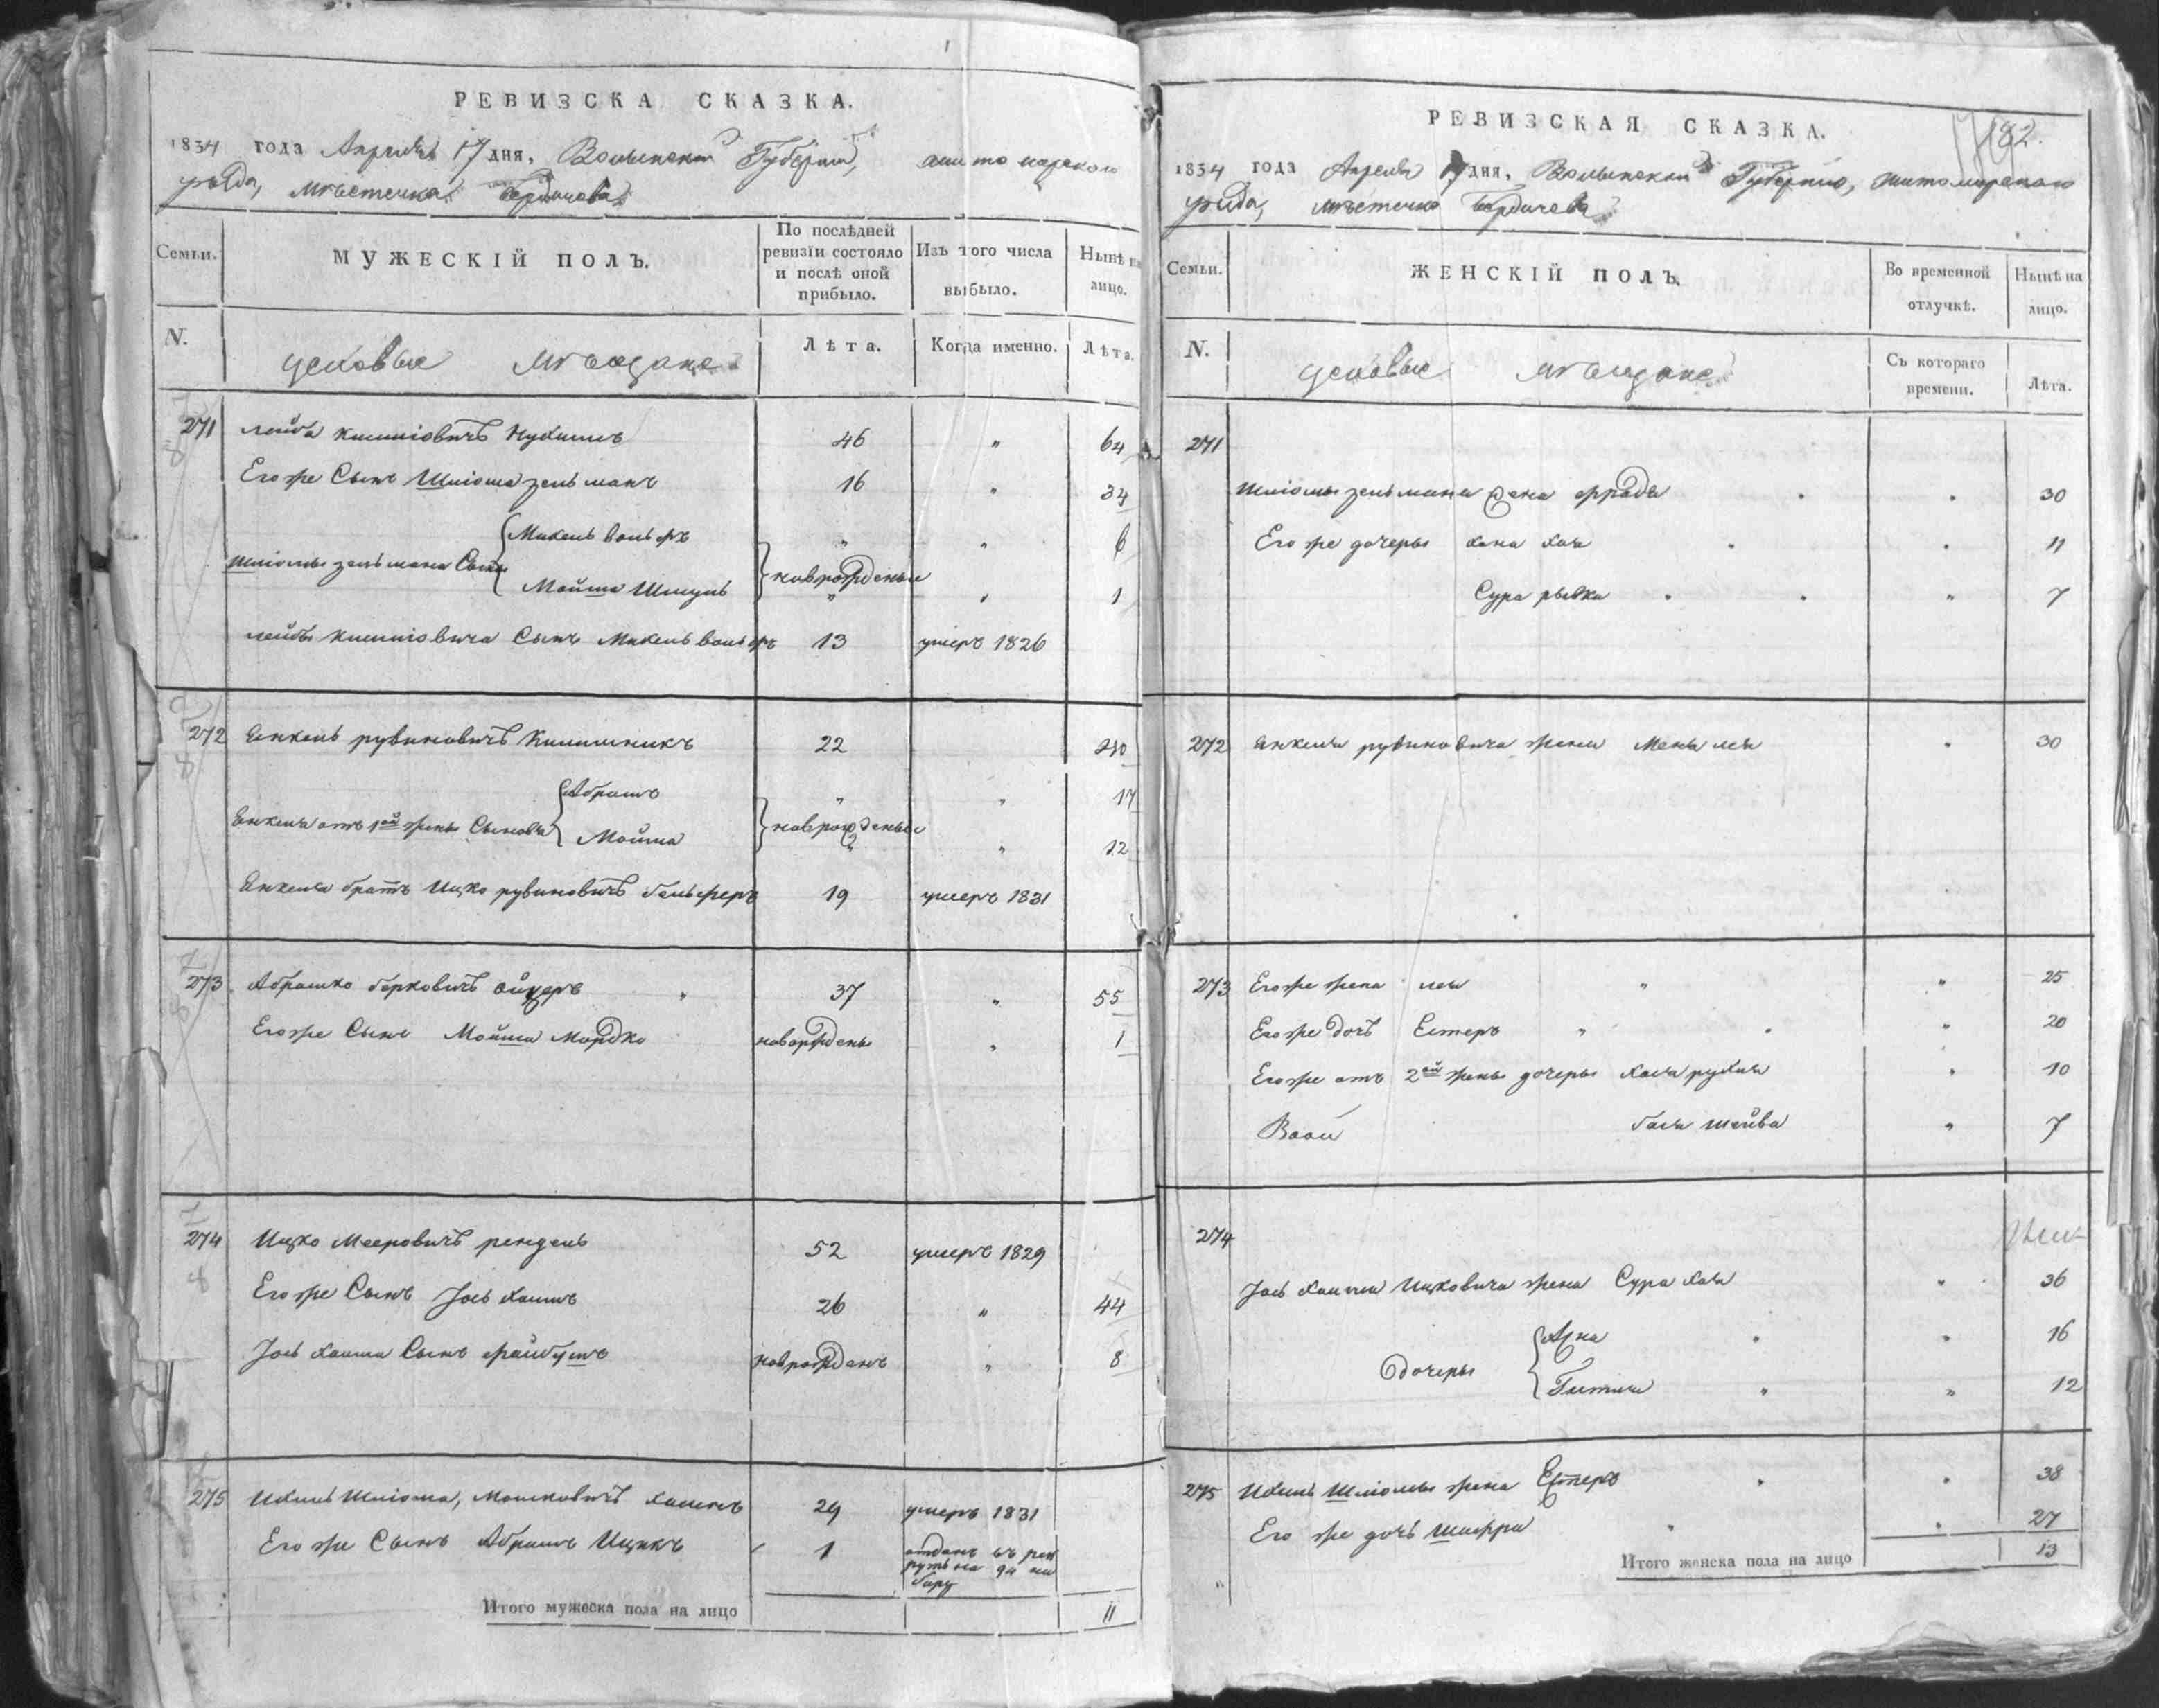 РЕВИЗСКА СКАЗКА.
1834 года Апреля 17 дня, Волынской Губернии, житомирского
уезда, мѣстечка Бердичева
Семьи.
МУЖЕСКІЙ ПОЛЪ.
По послѣдней
ревизіи состояло
и послѣ оной
прибыло.
Изъ того числа
выбыло.
Нынѣ на
лицо.
N.
цеховые мѣщане
Лѣта.
Когда именно.
Лѣта.
271 лейба Нухимъ 46 " 64
Егоже Сынъ Шліома зельманъ 16 " 34
Михель вольфъ " " 6
Шліомы зельмана Сыны новрожденые
Мойша Шмуль " " 1
лейбы Сынъ Михель вольфъ 13 умеръ 1826
272 Енкель рувиновичъ 22 40
Абрамъ " " 17
Енкеля отъ 1ой жены Сыновья новрожденые
Мойша " " 12
Енкеля братъ Ицко рувиновичъ 19 умеръ 1831
273 Абрамко берковичъ ойзеръ " 37 " 55
Егоже Сынъ Мойша Мордко новорждены " 1
274 Ицко Мееровичъ рендель 52 умеръ 1829
Егоже Сынъ Јось хаимъ 26 " 44
Јось хаима Сынъ файбушъ новрожденъ " 8
275 Ихиль Шліома, Мошковичъ 29 умеръ 1831
Его же Сынъ Абрамъ Ицикъ 1 отданъ въ рек
руты на 94 на
бору
Итого мужеска пола на лицо 11
РЕВИЗСКАЯ СКАЗКА.
182.
1834 года Апреля 17 дня, Волынской Губернию, житомирского
уезда, мѣстечко Бердичева
Семьи.
ЖЕНСКІЙ ПОЛЪ.
Во временной
отлучкѣ.
Нынѣ на
лицо.
N.
цеховые мѣщане
Съ котораго
времени.
Лѣта.
271
Шліомы зельмана жена фрада " 30
Его же дочеры хана хая " 11
Сура рывка " 7
272 Енкеля рувиновича жена Меня лея " 30
273 Егоже жена лея " " 25
Егоже дочь Естеръ " " 20
Егоже отъ 2ой жены дочеры хая рухля " 10
бася шейва " 7
274
Јось хаима Ицковича жена Сура хая " 36
" 16
дочеры
Гитля " 12
275 Ихиль Шліомы жена Естеръ " 38
Его же дочь шифра " 27
Итого женска пола на лицо 13